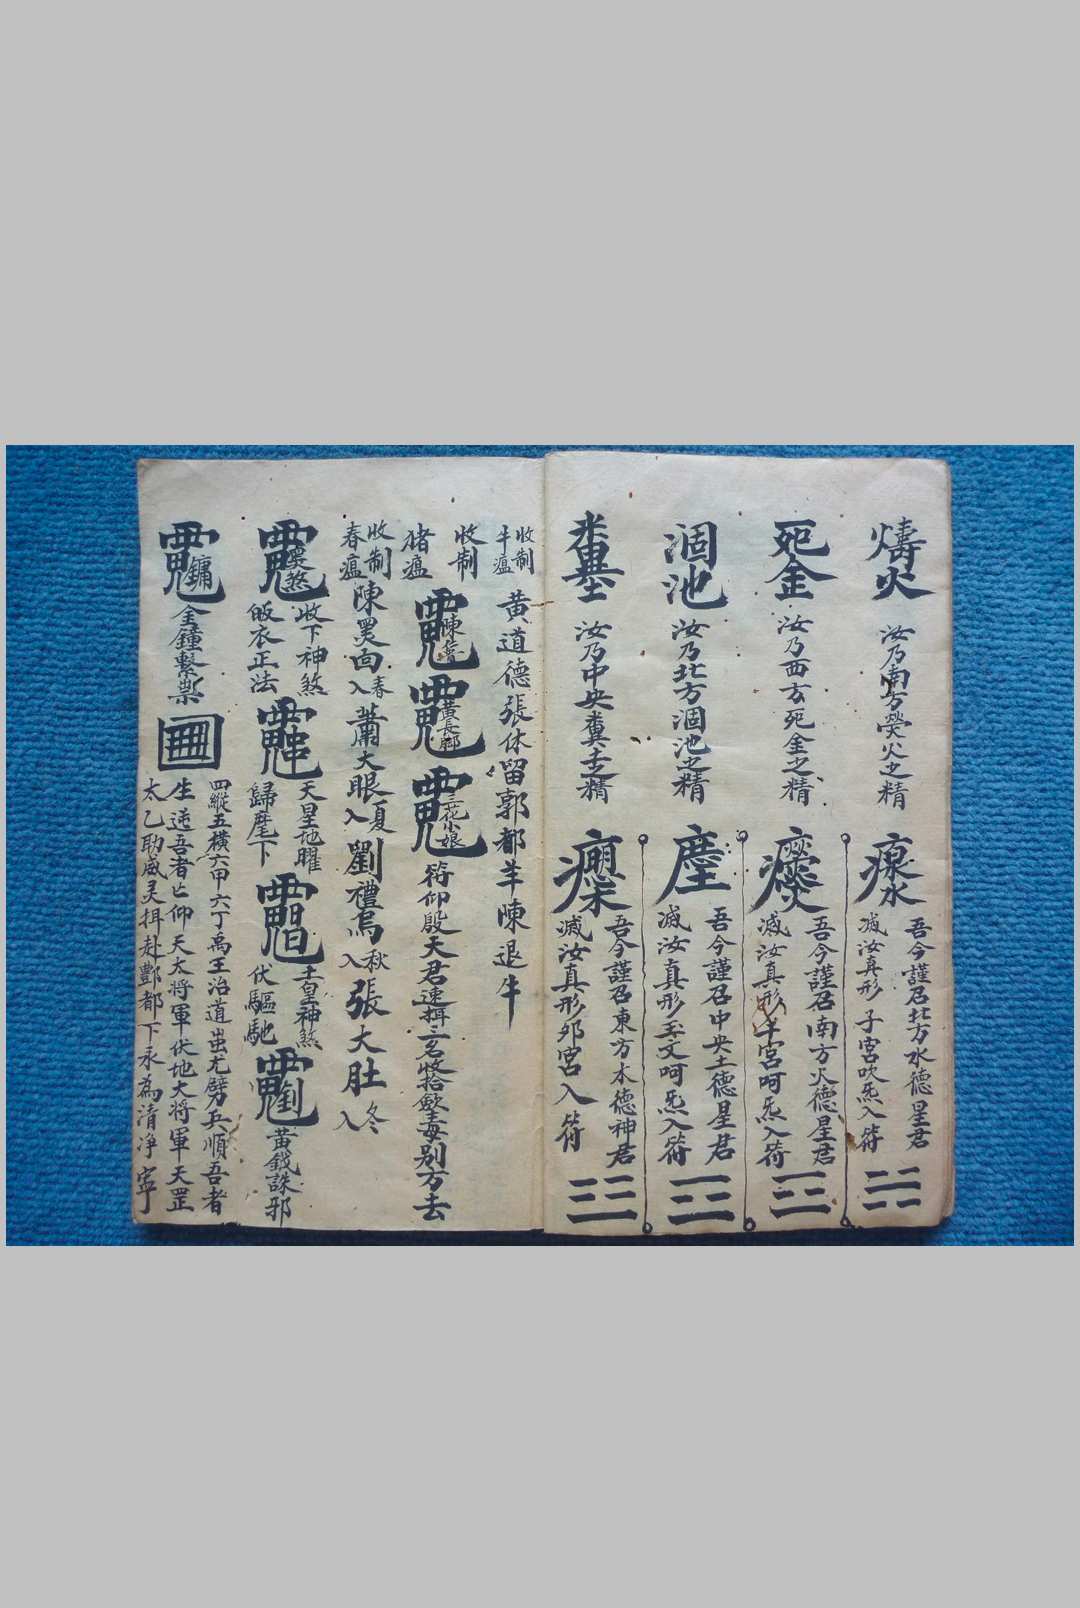 火
汝乃南方熒火之精
吾今謹召北方水德星君
滅汝真形子宮吹炁入符
死金
汝乃西方死金之精
吾今謹召南方火德星君
滅汝真形午宮呵炁入符
涸池
汝乃北方涸池之精
吾今謹召中央土德星君
滅汝真形 文呵炁入符
糞土
汝乃中央糞土之精
吾今謹召東方木德神君
滅汝真形卯宮 入符
收制牛瘟
黄道德張休留郭都羊陳退牛
收制猪瘟
黃長
三花小娘
符仰殷天君速揖三名收拾 毒别方去
收制春瘟
陳 向入春
蕭大眼入夏
劉禮 入秋
張大肚入冬
收下神煞
皈衣正法
天星地曜
歸麾下
土皇神煞
伏驅馳
黃鉞誅邪
金鐘擊
四縱五橫六甲六丁禹王治道蚩尤劈兵順吾者
生逆吾者亡仰天大將軍伏地大將軍天罡
太乙助威灵揖赴酆都下永為清净寧